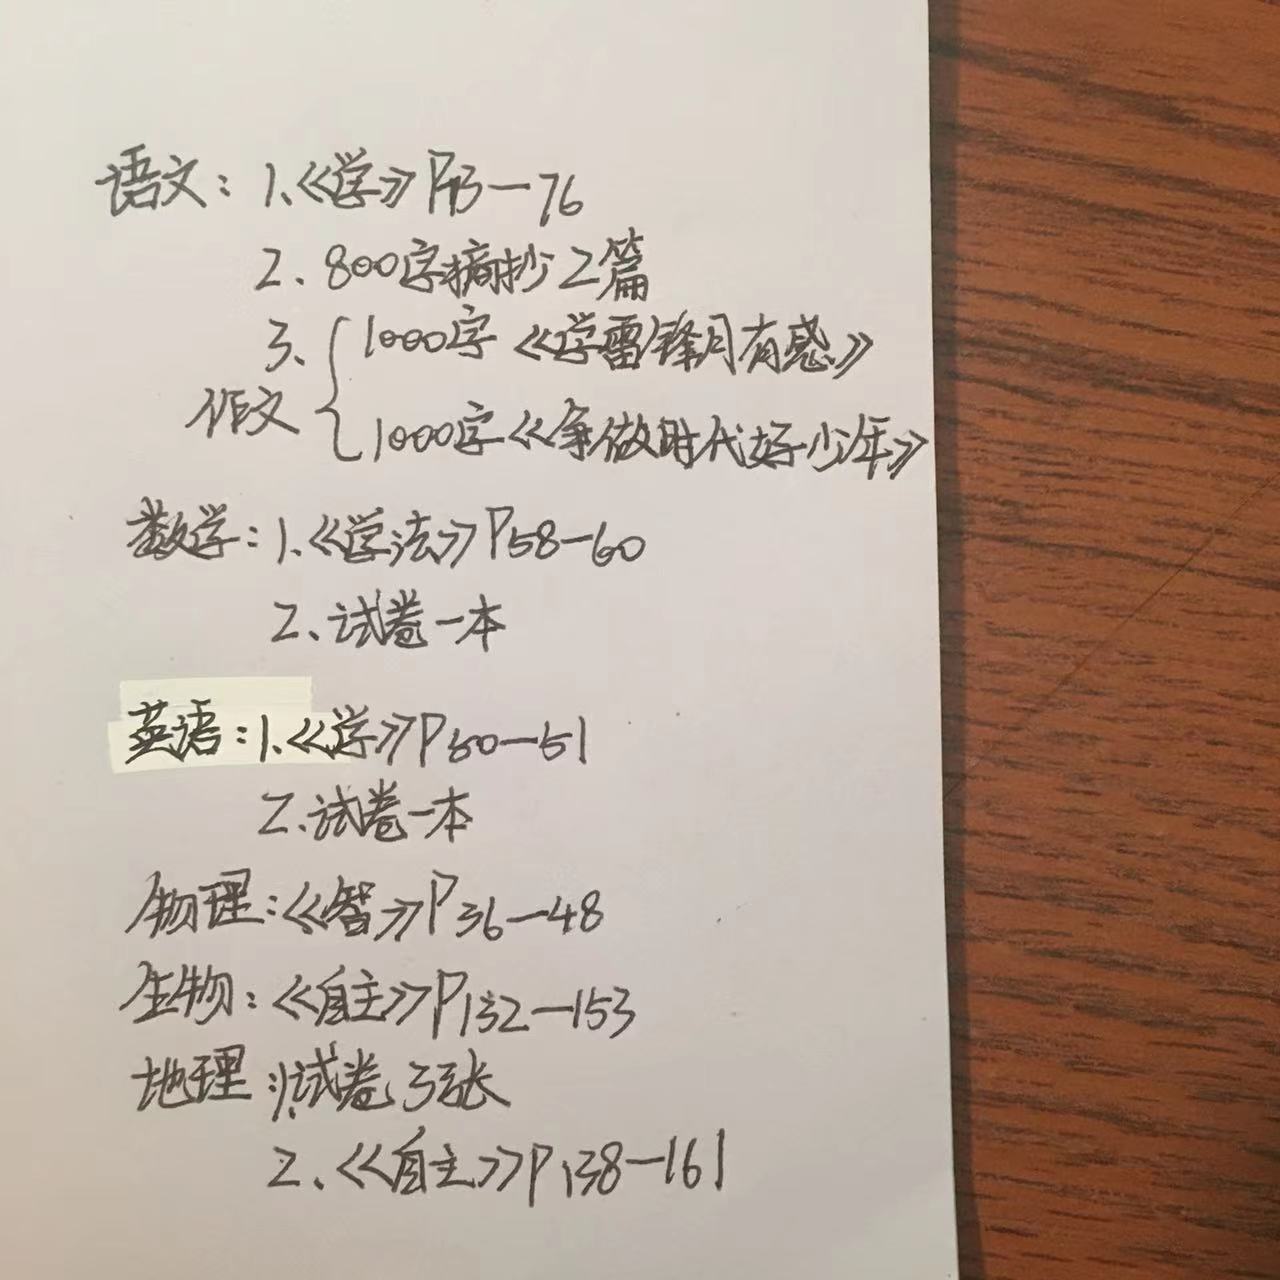 语文：1.《学》P73—76
2、800字摘抄2篇
3、 1000字《学雷锋月有感》
作文 1000字《争做时代好少年》
数学：1.《学法》P58—60
2、试卷一本
英语：1.《学》P50—51
2.试卷一本
物理：《智》P36—48
生物：《自主》P132—153
地理：1.试卷3张
2、《自主》P138—161